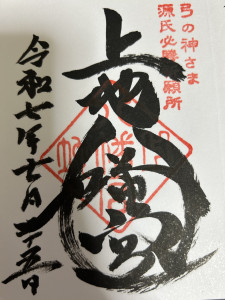 弓の神さま
源氏必勝祈願所
上地八幡宮
令和七年七月二十五日